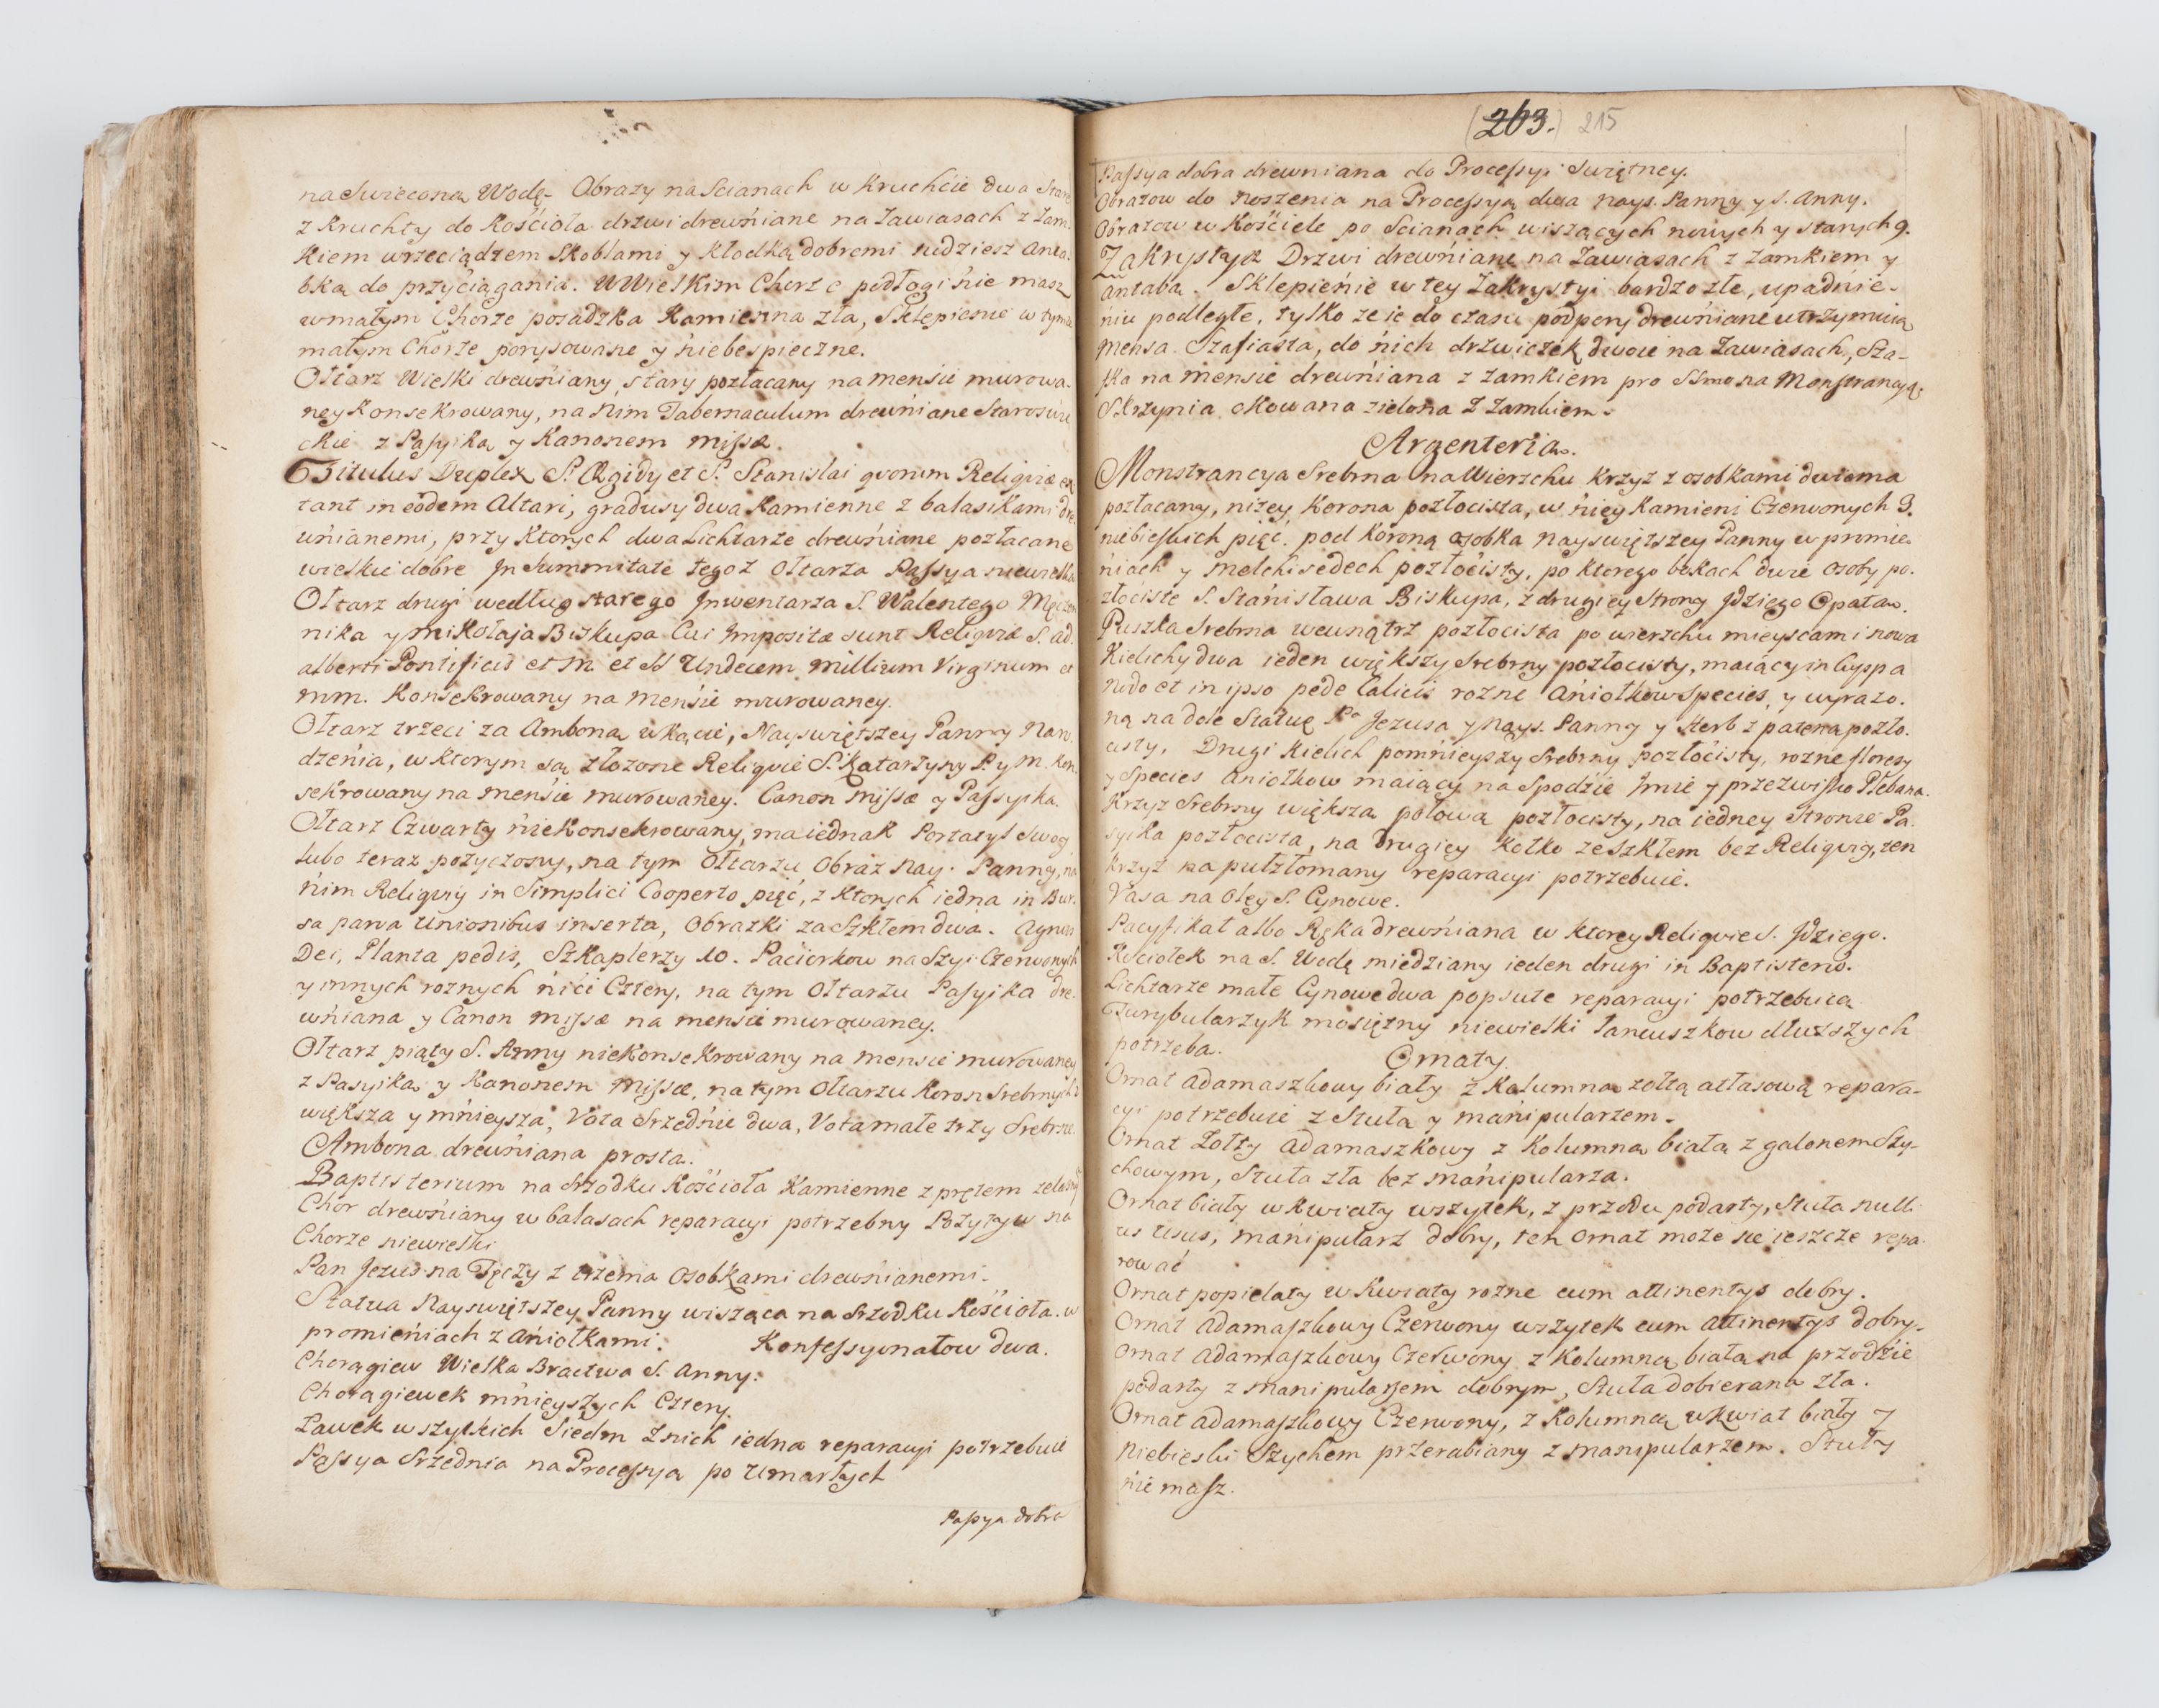 na Swięconą Wodę. Obrazy na Scianach w Kruchcie dwa Stare
z Kruchty do Kościoła drzwi drewniane na Zawiasach z Zam-
kiem wrzeciądzem Skoblami y Kłodką dobremi tudziesz anta-
bką do przyciągania. W Wielkim Chorze podłogi nie masz
w małym Chorze posadzka Kamienna zła, Sklepienie w tymże
małym Chorze porysowane y niebespieczne.
Ołtarz Wielki drewniany stary pozłacany na mensie murowa-
ney Konsekrowany, na nim Tabernaculum drewniane Staroswie
ckie z Passyiką y Kanonem Missæ.
Titulus Duplex S. Ægidy et S. Stanislai qvorum Religviæ ex
tant in eodem Altari, gradusy dwa Kamienne z balasikami dre-
wnianemi, przy Ktorych dwa Lichtarze drewniane pozłacane
wielkie dobre Jn Summitate tegoż Ołtarza Passya niewielka
Ołtarz drugi według starego Jnwentarza S. Walentego Męczen
nika y Mikołaja Biskupa Cui Jmpositæ sunt Religviæ S. ad
alberti Pontificis et M. et SS Undecem Millium Virginum et
mm. Konsekrowany na Mensie murowaney.
Ołtarz trzeci za Amboną w kącie, Nayswiętszey Panny Naro-
dzenia, w Ktorym są złożone Religvie S. Katarzyny P. y M. Kon-
sekrowany na Mensie murowaney. Canon Missæ y Passyika.
Ołtarz Czwarty nieKonsekrowany, ma iednak Portatyl Swoy
lubo teraz pożyczony, na tym Ołtarzu Obraz Nay. Panny, na
nim Religviy in Simplici Cooperto pięć, z Ktorych iedna in Bur-
sa parva Unionibus inserta, Obrazki za Szkłem dwa. Agnus
Dei, Planta pedis, Szkaplerzy 10. Paciorkow na Szyi Czerwonych
y innych roznych nici Cztery, na tym Ołtarzu Passyika dre-
wniana y Canon Missæ na mensie murowaney.
Ołtarz piąty S. Anny nieKonsekrowany na Mensie murowaney
z Pasyiką y Kanonem Missæ, na tym Ołtarzu Koron Srebrnych 2
większa y mnieysza, Vota Srzednie dwa, Vota małe trzy Srebrne.
Ambona drewniana prosta.
Baptisterium na Srzodku Kościoła Kamienne z prętem żelaznym
Chor drewniany w balasach reparacyi potrzebny Pozytyw na
Chorze niewielki
Pan Jezus na Tęczy z trzema Osobkami drewnianemi.
Statua Nayswiętszey Panny wisząca na Srzodku Kościoła. w
promieniach z Aniołkami. Konfessyonałow dwa.
Chorągiew Wielka Bractwa S. Anny.
Chorągiewek mnieyszych Cztery
Ławek wszytkich Siedm z nich iedna reparacyi potrzebuie
Passya Srzednia na Processyą po Umarłych
Passya dobra
(263.) 215
Passya dobra drewniana do Processyi Swiętney.
Obrazow do noszenia na Processyą dwa Nays. Panny y S. Anny.
Obrazow w Kościele po Scianach wiszących nowych y starych 9.
Zakrystya Drzwi drewniane na Zawiasach z Zamkiem y
antabą. Sklepienie w tey Zakrystyi bardzo złe, upadnie-
niu podległe, tylko ze ie do czasu podpory drewniane utrzymuią
Mensa Szafiasta, do nich drzwiczek dwoie na Zawiasach, Sza-
fka na Mensie drewniana z Zamkiem pro SSmo na Monstrancyą.
Skrzynia okowana zielona z Zamkiem.
Argenteria.
Monstrancya Srebrna na Wierzchu Krzyż z osobkami dwiema
pozłacany, niżey Korona pozłocista, w niey Kamieni Czerwonych 9.
niebieskich pięc. pod Koroną Osobka Nayswiętszey Panny w promie-
niach y Melchisedech pozłocisty, po ktorego bokach dwie Osoby po-
złociste S. Stanisława Biskupa, z drugiey Strony Jdziego Opata.
Puszka Srebrna wewnątrz pozłocista po wierzchu mieyscami nowa
Kielichy dwa ieden większy Srebrny pozłocisty, maiący in Cuppa
nodo et in ipso pede Calicis rozne Aniołkow Species, y wyrażo-
ną na dole Statuę Pa Jezusa y Nays. Panny y Herb z pateną pozło-
cisty. Drugi Kielich pomnieyszy Srebrny pozłocisty, rozne floresy
y Species Aniołkow maiący na Spodzie Jmie y przezwisko Plebana.
Krzyż Srebrny większą połową pozłocisty, na iedney stronie Pa-
syika pozłocista, na drugiey Kołko ze Szkłem bez Religviy, ten
Krzyż na puł złomany reparacyi potrzebuie.
Vasa na Oley S. Cynowe.
Pacyfikał albo Ręka drewniana w ktorey Religvie S. Jdziego.
Kociołek na S. Wodę miedziany ieden drugi in Baptisterio.
Lichtarze małe Cynowe dwa popsute reparacyi potrzebuią
Turybularzyk mosiężny niewielki Łancuszkow dłuższych
potrzeba.
Ornaty.
Ornat Adamaszkowy biały z Kolumną zołtą atłasową repara-
cyi potrzebuie z Stułą y manipularzem.
Ornat Zołty Adamaszkowy z Kolumną białą z galonem Szy-
chowym, Stuła zła bez manipularza.
Ornat biały w Kwiaty wszytek, z przodu podarty, Stuła nulli-
us Usus, manipularz dobry, ten Ornat może się ieszcze repa-
rować
Ornat popielaty w Kwiaty rozne cum attinentys dobry.
Ornat Adamaszkowy Czerwony wszytek cum attinentys dobry.
Ornat Adamaszkowy Czerwony z Kolumną białą na przodzie
podarty z manipularzem dobrym, Stuła dobierana zła.
Ornat Adamaszkowy Czerwony, z Kolumną w Kwiat biały y
Niebieski Szychem przerabiany z manipularzem. Stuły
nie masz.